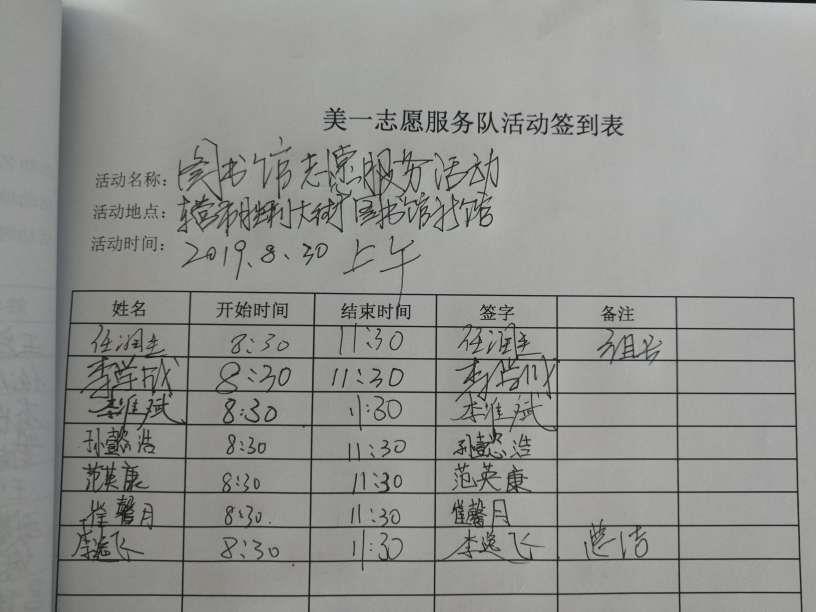 美一志愿服务队活动签到表
活动名称：图书馆志愿服务活动
活动地点：东营市胜利大街图书馆新馆
活动时间：2019.8.30 上午
姓名 开始时间 结束时间 签字 备注
任润圭 8:30 11:30 任润圭 组长
李学成 8:30 11:30 李学成
李维斌 8:30 11:30 李维斌
孙懿浩 8:30 11:30 孙懿浩
范英康 8:30 11:30 范英康
崔馨月 8:30. 11:30 崔馨月
李逸飞 8:30 11:30 李逸飞 总结